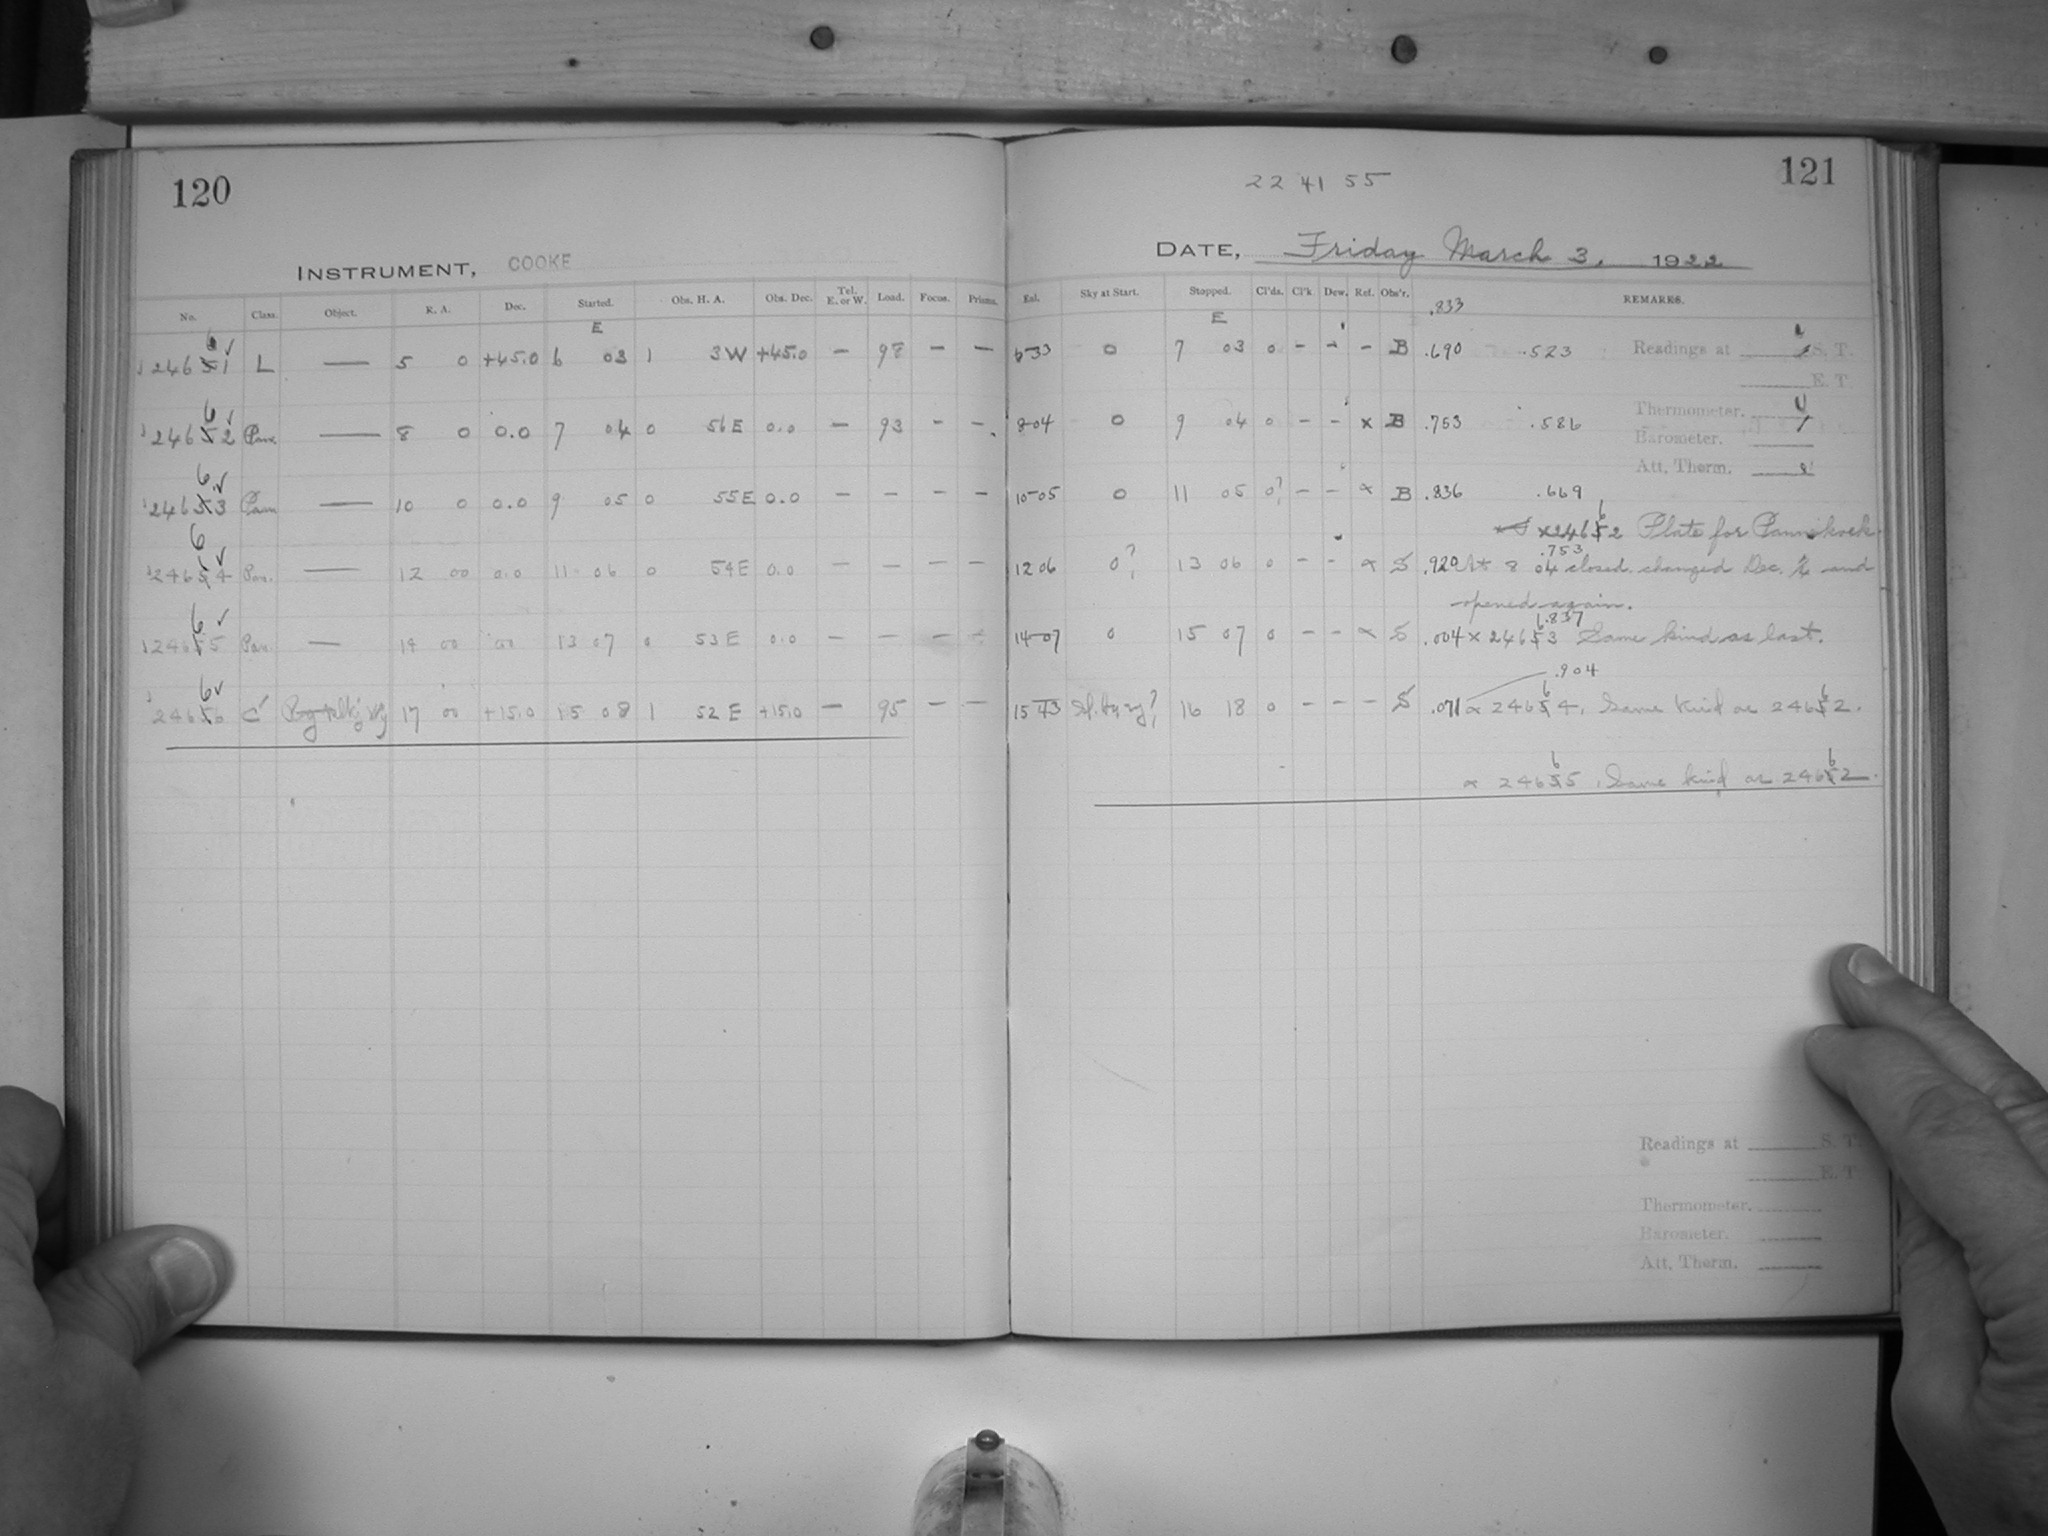 120
INSTRUMENT, COOKE
No. Class. Object. R. A. Dec. Started. Obs. H. A. Obs. Dec. Tel. E. or W. Load. Focus. Prisms.
E
24661 L — 5 0 +45.0 6 03 1 3 W +45.0 – 98 – –
24662 Pann — 8 0 0.0 7 04 0 56 E 0.0 – 93 – –
24663 Pann — 10 0 0.0 9 05 0 55 E 0.0 – – – –
24664 Pan. — 12 00 0.0 11 06 0 54 E 0.0 – – – –
24665 Pan — 14 00 00 13 07 0 53 E 0.0 – – –
24666 C 17 00 +15.0 15 08 1 52 E +15.0 – 95 – –
121
22 41 55
DATE, Friday March 3, 1922
Exl. Sky at Start. Stopped. Cl'ds. Cl'k Dew. Ref. Obs'r. REMARKS.
E .833
6-33 0 7 03 0 – – – B .690 .523 Readings at S. T.
E. T.
Thermometer.
8-04 0 9 04 0 – – x B .753 .586
Barometer.
Att. Therm.
10-05 0 11 05 0? – – x B .836 .669
x 24662 Plate for Pannekoek.
.753
12 06 0? 13 06 0 – – x S .920 At 8 04 closed. changed Dec. and
opened again.
.837
14-07 0 15 07 0 – – x S .004 x 24663 Same kind as last.
.904
15 43 Sl. hazy? 16 18 0 – – – S .071 x 24664, Same kind as 24662.
x 24665, Same kind as 24662.
Readings at S. T.
E. T.
Thermometer.
Barometer.
Att. Therm.